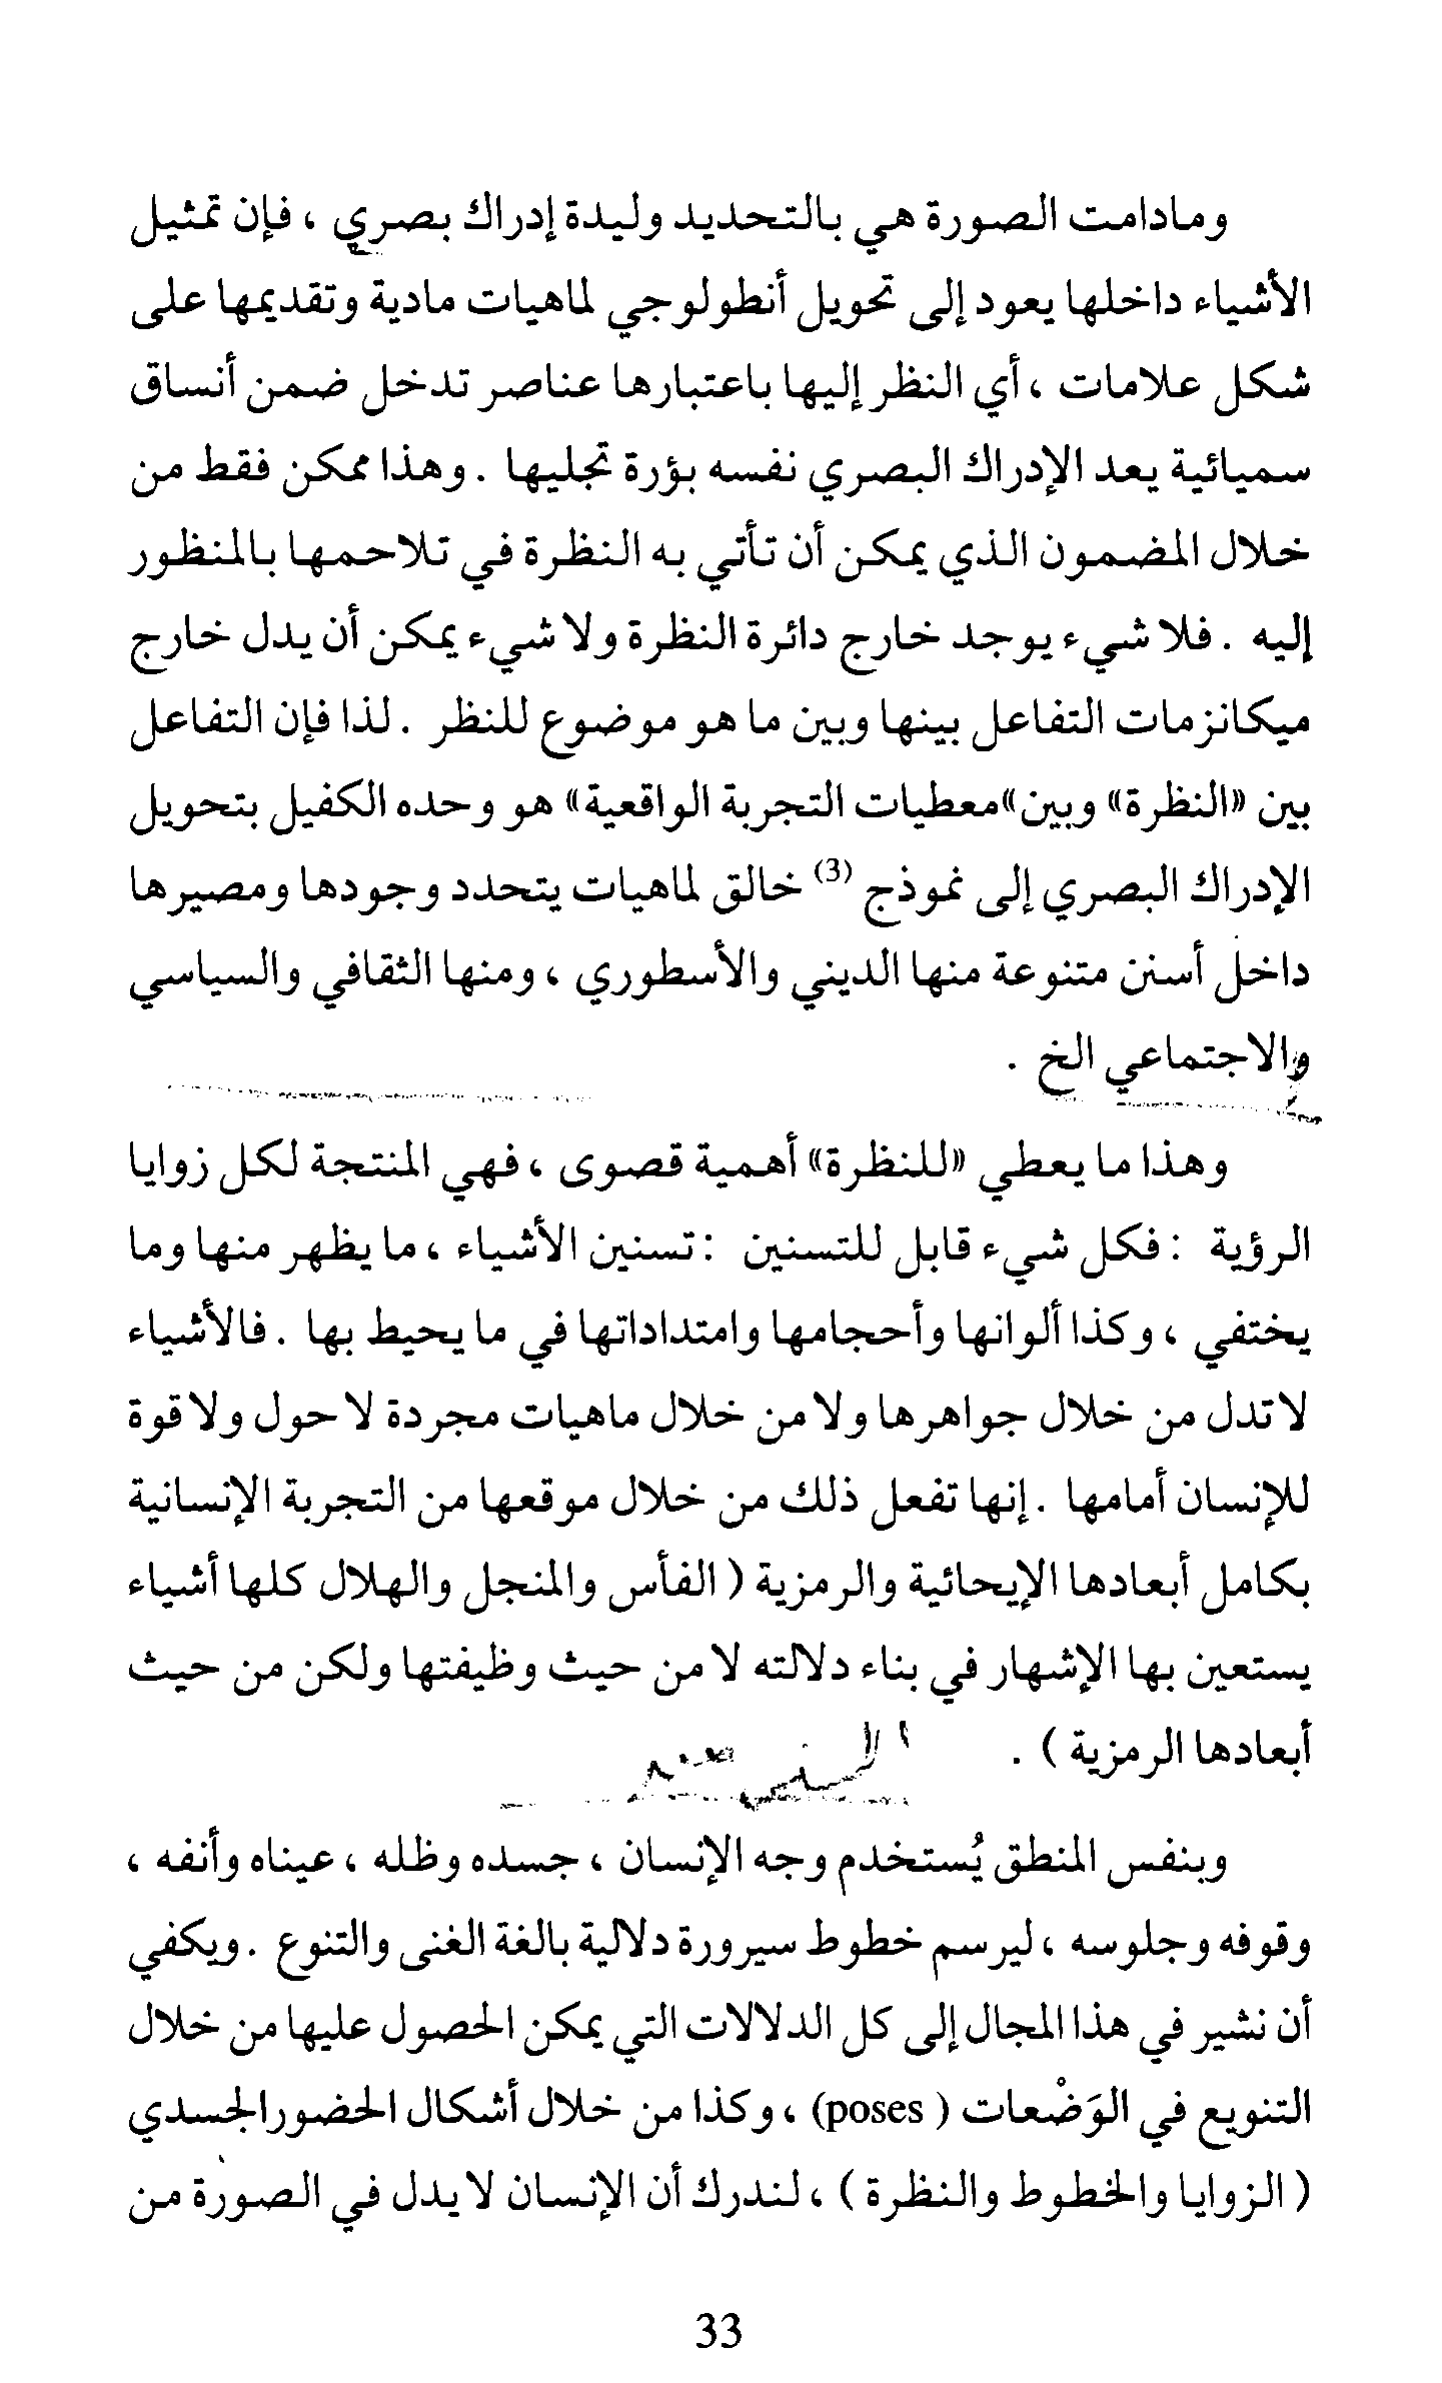 ومادامت الصورة هي بالتحديد وليدة إدراك بصري ، فإن تمثيل
الأشياء داخلها يعود إلى تحويل أنطولوجي لماهيات مادية وتقديمها على
شكل علامات ، أي النظر إليها باعتبارها عناصر تدخل ضمن أنساق
سميائية يعد الإدراك البصري نفسه بؤرة تجليها . وهذا ممكن فقط من
خلال المضمون الذي يمكن أن تأتي به النظرة في تلاحمها بالمنظور
إليه . فلا شيء يوجد خارج دائرة النظرة ولا شيء يمكن أن يدل خارج
ميكانزمات التفاعل بينها وبين ما هو موضوع للنظر . لذا فإن التفاعل
بين «النظرة» وبين «معطيات التجربة الواقعية» هو وحده الكفيل بتحويل
الإدراك البصري إلى نموذج (3) خالق لماهيات يتحدد وجودها ومصيرها
داخل أسنن متنوعة منها الديني والأسطوري ، ومنها الثقافي والسياسي
والاجتماعي الخ .
وهذا ما يعطي «للنظرة» أهمية قصوى ، فهي المنتجة لكل زوايا
الرؤية : فكل شيء قابل للتسنين : تسنين الأشياء ، ما يظهر منها وما
يختفي ، وكذا ألوانها وأحجامها وامتداداتها في ما يحيط بها . فالأشياء
لا تدل من خلال جواهرها ولا من خلال ماهيات مجردة لا حول ولا قوة
للإنسان أمامها . إنها تفعل ذلك من خلال موقعها من التجربة الإنسانية
بكامل أبعادها الإيحائية والرمزية ( الفأس والمنجل والهلال كلها أشياء
يستعين بها الإشهار في بناء دلالته لا من حيث وظيفتها ولكن من حيث
أبعادها الرمزية ) .
وبنفس المنطق يُستخدم وجه الإنسان ، جسده وظله ، عيناه وأنفه ،
وقوفه وجلوسه ، ليرسم خطوط سيرورة دلالية بالغة الغنى والتنوع . ويكفي
أن نشير في هذا المجال إلى كل الدلالات التي يمكن الحصول عليها من خلال
التنويع في الوَضْعات ( poses) ، وكذا من خلال أشكال الحضورالجسدي
( الزوايا والخطوط والنظرة ) ، لندرك أن الإنسان لا يدل في الصورة من
33